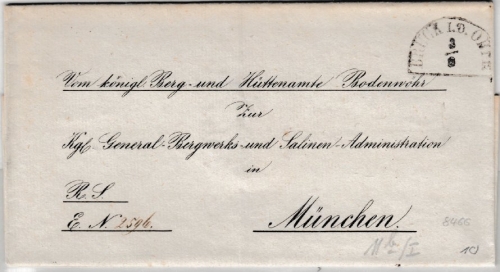 BRUCK I.D. OBPF.
2
8
Vom königl. Berg- und Hüttenamte Bodenwöhr
Zur
Kgl. General-Bergwerks- und Salinen-Administration
in
R. S.
E. N. 2596.
München.
8466